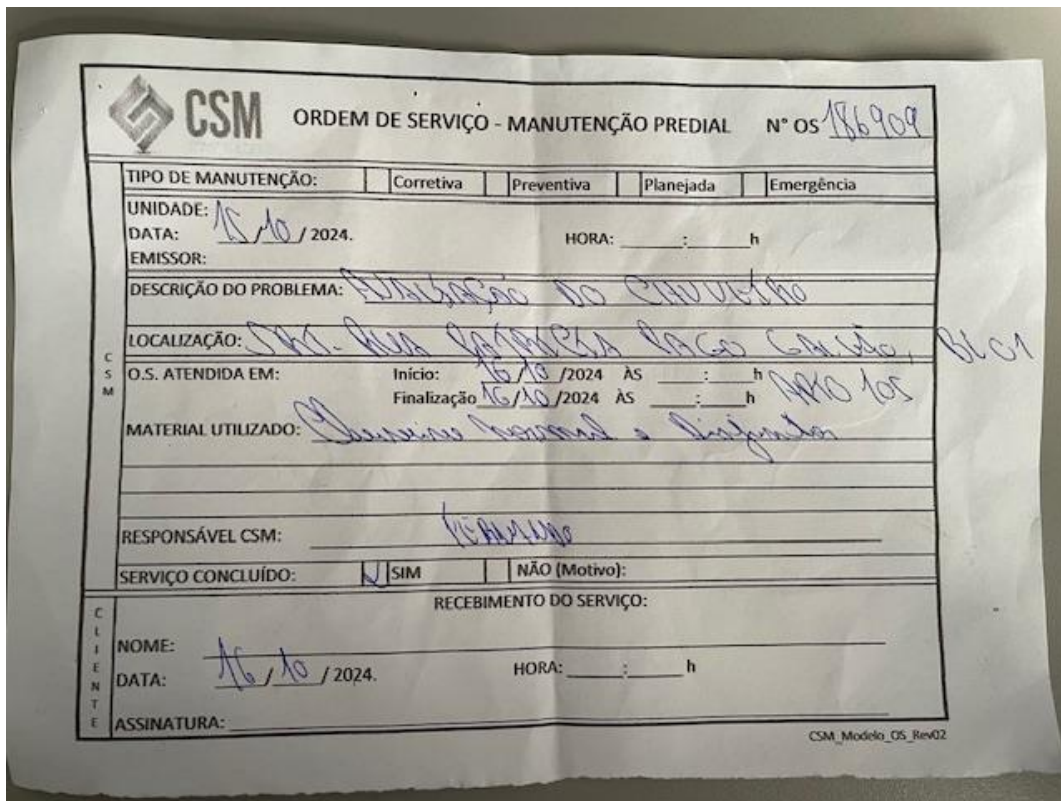 CSM ORDEM DE SERVIÇO - MANUTENÇÃO PREDIAL N° OS 186909
TIPO DE MANUTENÇÃO: Corretiva Preventiva Planejada Emergência
UNIDADE:
DATA: 15/10/2024. HORA: ____:____h
EMISSOR:
DESCRIÇÃO DO PROBLEMA: DO CHUVEIRO
LOCALIZAÇÃO: RUA GALVÃO, BLC1
O.S. ATENDIDA EM: Início: 16/10/2024 ÀS ____:____h APTO 105
Finalização 16/10/2024 ÀS ____:____h
MATERIAL UTILIZADO: Chuveiro normal e Disjuntor
RESPONSÁVEL CSM:
SERVIÇO CONCLUÍDO: SIM NÃO (Motivo):
RECEBIMENTO DO SERVIÇO:
NOME:
DATA: 16/10/2024. HORA: ____:____h
ASSINATURA:
CSM
CLIENTE
CSM_Modelo_OS_Rev02